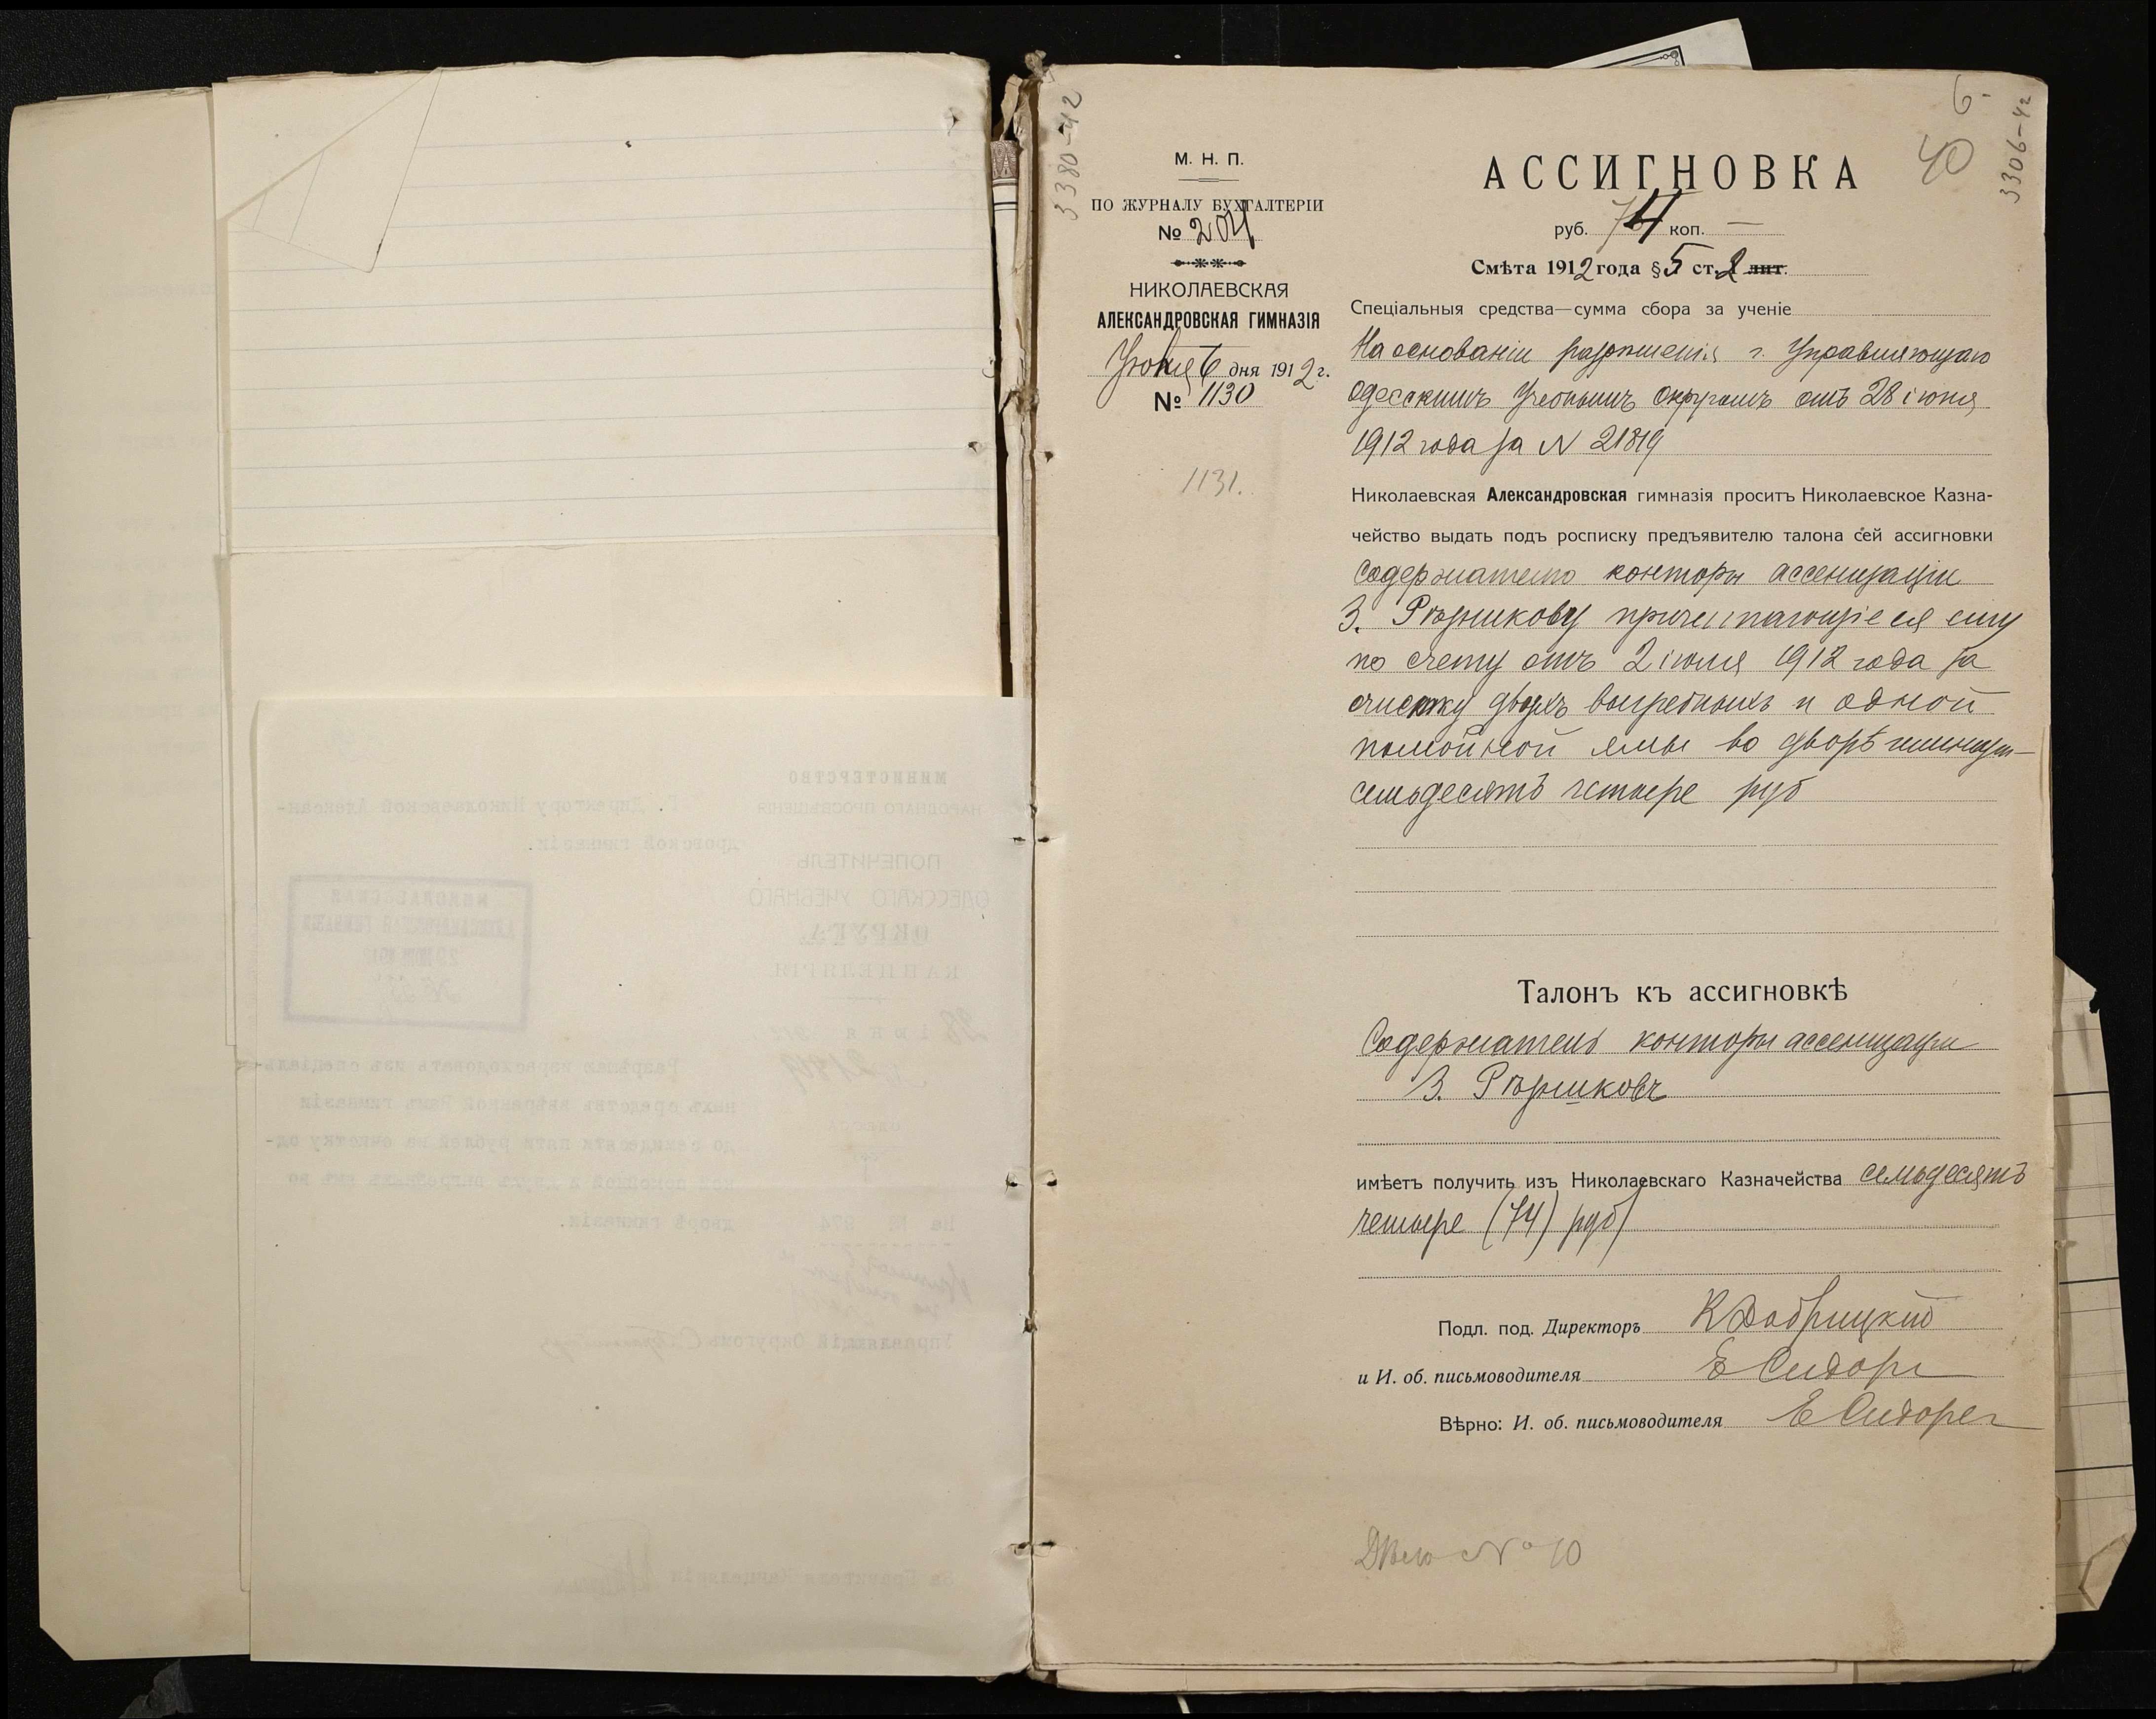 3380-42
М. Н. П.
ПО ЖУРНАЛУ БУХГАЛТЕРІИ
№ 204
НИКОЛАЕВСКАЯ
АЛЕКСАНДРОВСКАЯ ГИМНАЗІЯ
6 дня 1912 г.
№ 1130
1131.
6.
40
3306-42
АССИГНОВКА
руб. 74 коп. —
Смѣта 1912 года § 5 ст. 2 лит.
Спеціальныя средства—сумма сбора за ученіе
На основаніи разрѣшенія г. Управляющаго
Одесскимъ Учебнымъ Округомъ отъ 28 іюня
1912 года за N 21819
Николаевская Александровская гимназія проситъ Николаевское Казна-
чейство выдать подъ росписку предъявителю талона сей ассигновки
Содержателю конторы ассенизаціи
З. Рѣзникову причитающіеся ему
по счету отъ 2 іюля 1912 года за
очистку двухъ выгребныхъ и одной
помойной ямы во дворѣ гимназіи—
семьдесятъ четыре руб
Талонъ къ ассигновкѣ
Содержатель конторы ассенизаціи
З. Рѣзниковъ
имѣетъ получить изъ Николаевскаго Казначейства семьдесятъ
четыре (74) руб
Подл. под. Директоръ
и И. об. письмоводителя
Вѣрно: И. об. письмоводителя
Дѣло № 10
МИНИСТЕРСТВО
НАРОДНАГО ПРОСВѢЩЕНІЯ
ПОПЕЧИТЕЛЬ
ОДЕССКАГО УЧЕБНАГО
ОКРУГА.
КАНЦЕЛЯРІЯ
Г. Директору Николаевской Алексан-
дровской гимназіи.
НИКОЛАЕВСКАЯ
АЛЕКСАНДРОВСКАЯ ГИМНАЗІЯ
Разрѣшаю израсходовать изъ спеціаль-
ныхъ средствъ ввѣренной Вамъ гимназіи
до семидесяти пяти рублей на очистку од-
ной помойной и двухъ выгребныхъ ямъ во
дворѣ гимназіи.
На № 974
Управляющій Округомъ
За Правителя Канцеляріи